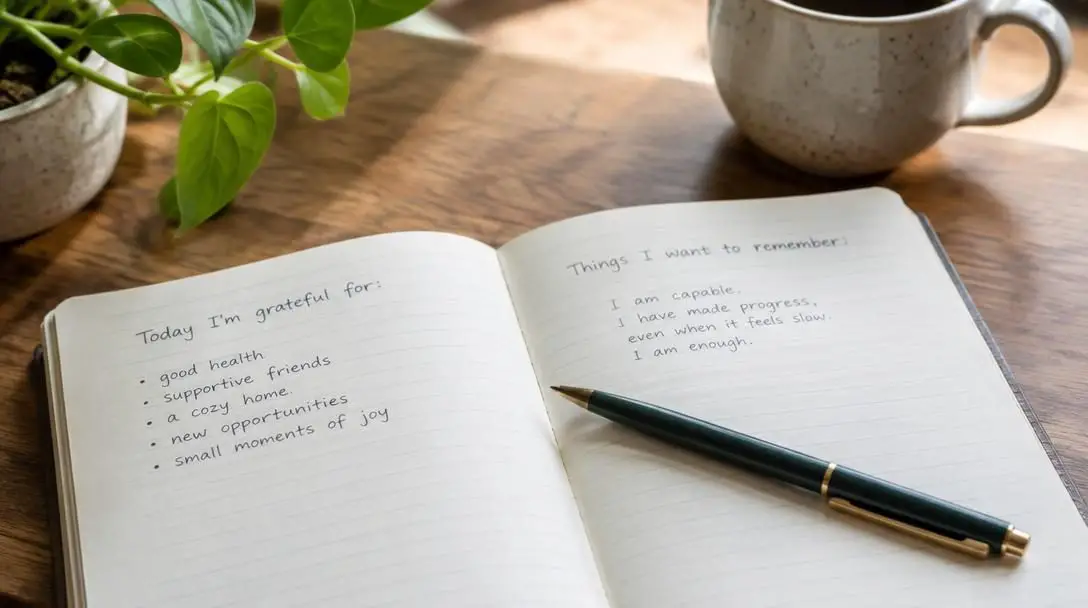 Today I'm grateful for:
• good health
• supportive friends
• a cozy home.
• new opportunities
• small moments of joy
Things I want to remember:
I am capable.
I have made progress,
even when it feels slow.
I am enough.